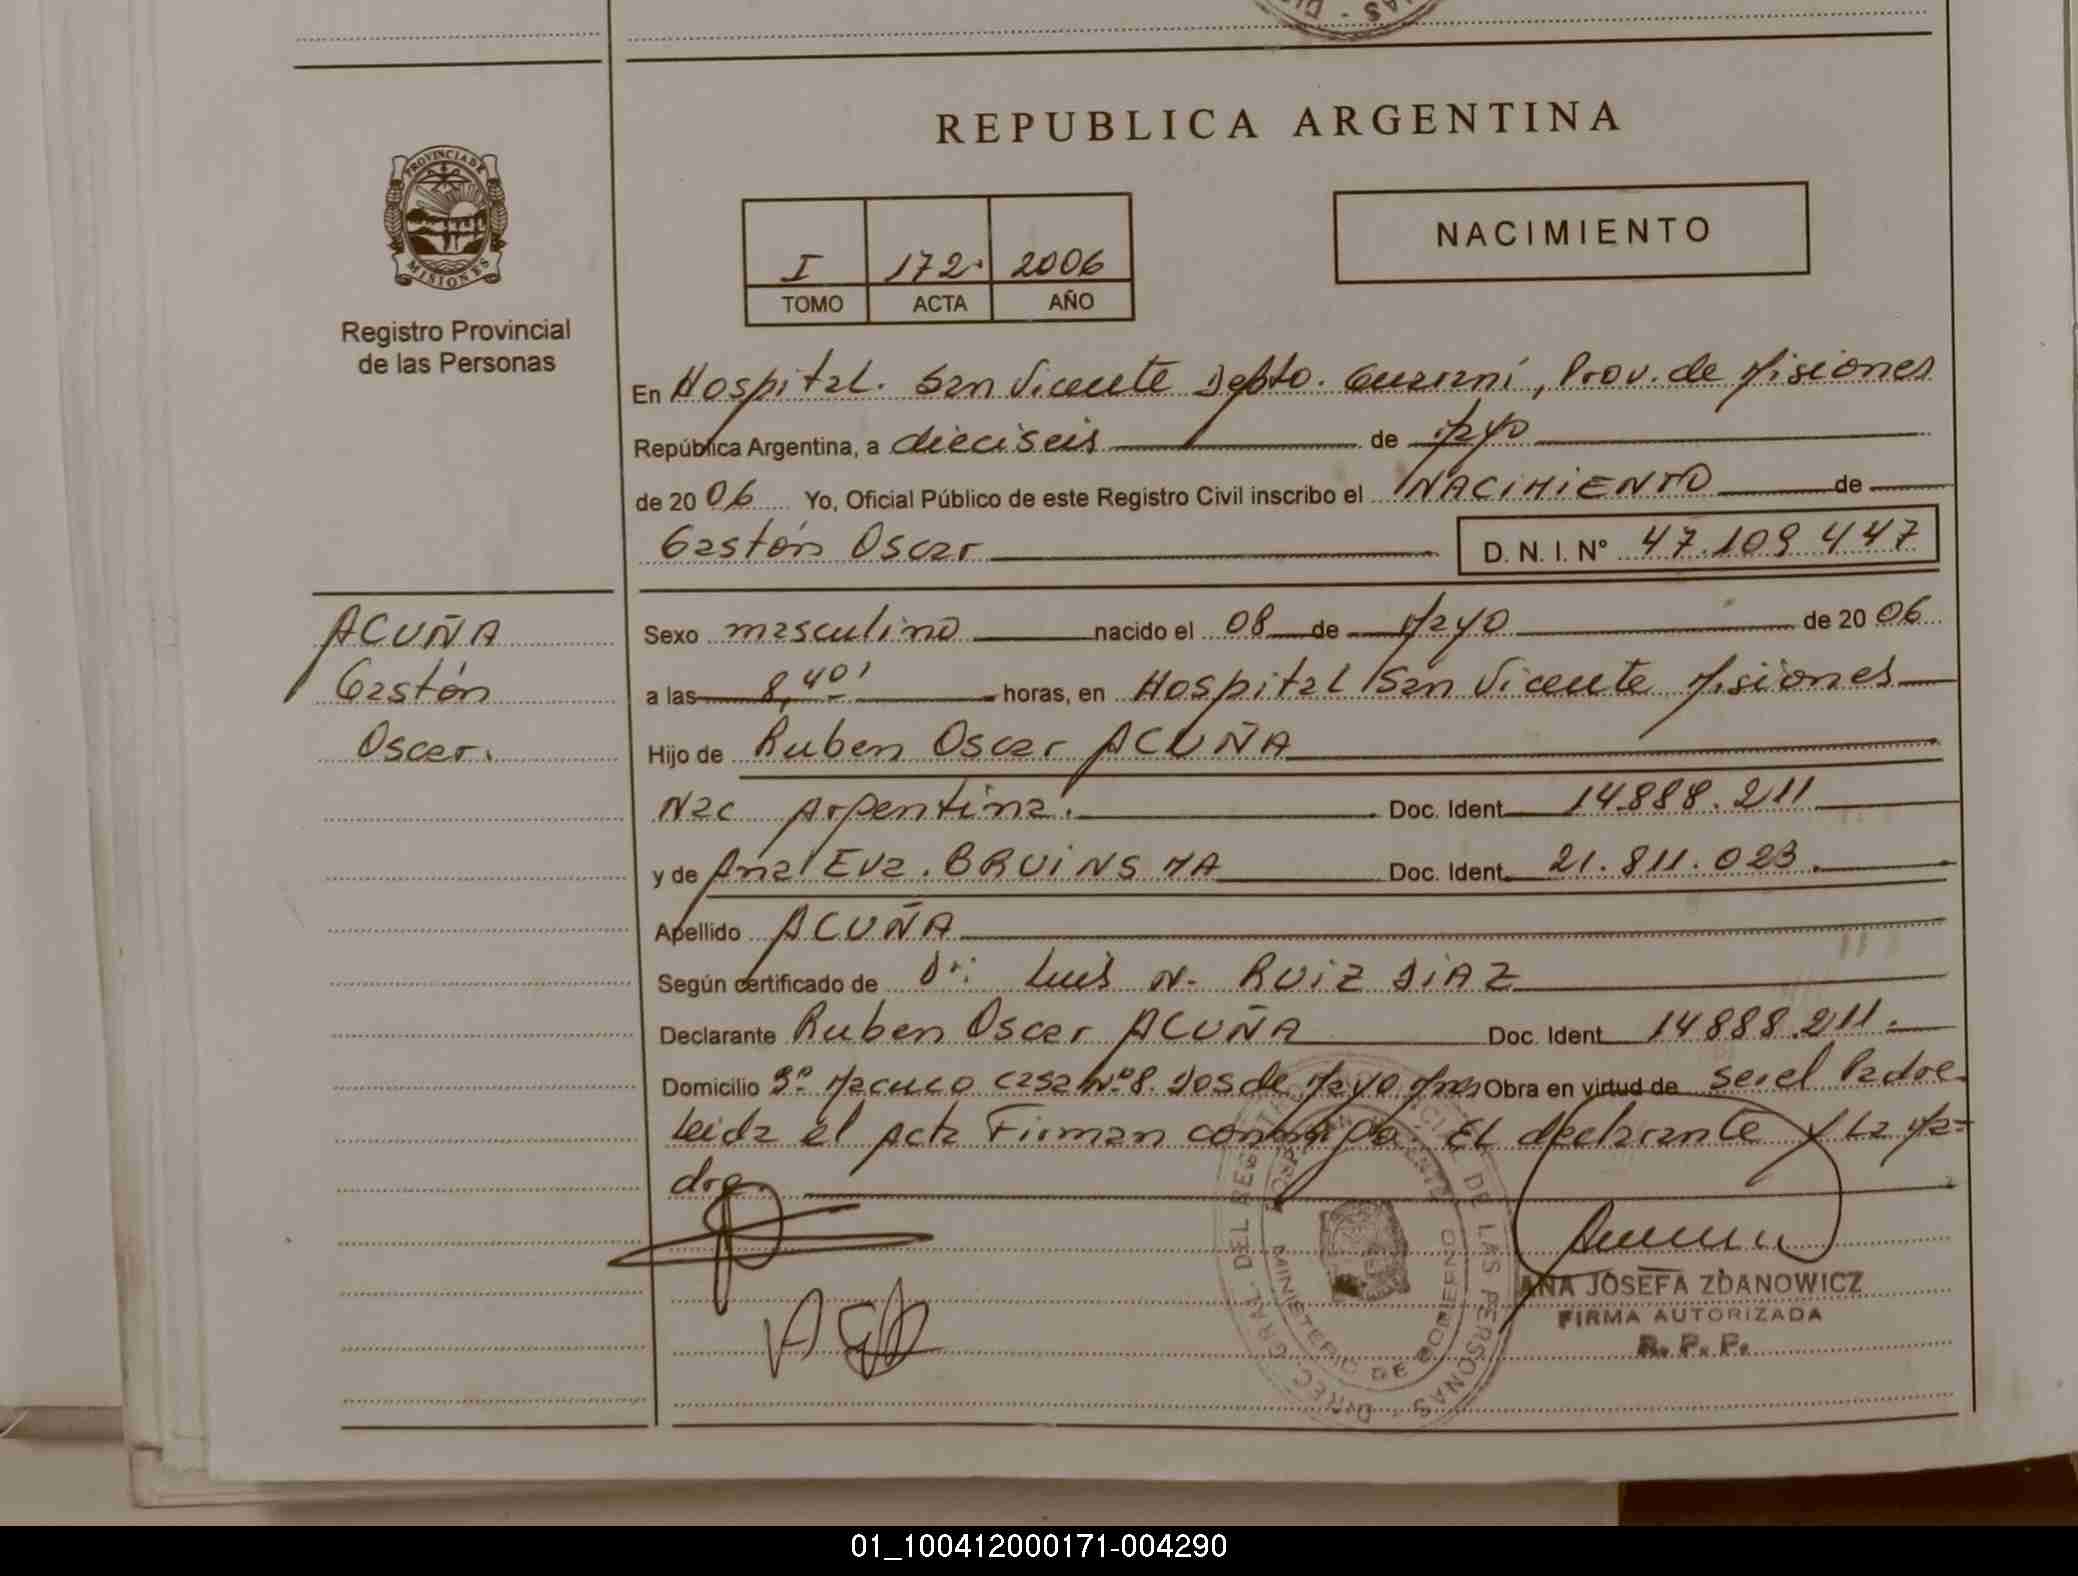 REPUBLICA ARGENTINA
PROVINCIA DE MISIONES
Registro Provincial
de las Personas
I 172. 2006
TOMO ACTA AÑO
NACIMIENTO
En Hospital. San Vicente Depto. Guaraní, Prov. de Misiones
República Argentina, a dieciseis de Mayo
de 20 06 Yo, Oficial Público de este Registro Civil inscribo el NACIMIENTO de
Gastón Oscar D. N. I. Nº 47.109 447
ACUÑA
Gastón
Oscar.
Sexo masculino nacido el 08 de Mayo de 20 06
a las 8,40' horas, en Hospital San Vicente Misiones
Hijo de Ruben Oscar ACUÑA
Nac Argentina. Doc. Ident. 14.888.211
y de Ana Eva. BRUINSMA Doc. Ident. 21.811.023.
Apellido ACUÑA
Según certificado de Dr: Luis N. RUIZ DIAZ
Declarante Ruben Oscar ACUÑA Doc. Ident. 14888.211.
Domicilio Bº Macuco casa Nº 8. Dos de Mayo Mnes Obra en virtud de ser el Padre
Leida el Acta Firman conmigo. EL declarante y La Ma=
dre.
DIREC. GRAL. DEL REGISTRO PROVINCIAL DE LAS PERSONAS
HOSPITAL SAN VICENTE
MINISTERIO DE GOBIERNO
ANA JOSEFA ZDANOWICZ
FIRMA AUTORIZADA
R. P. P.
01_100412000171-004290